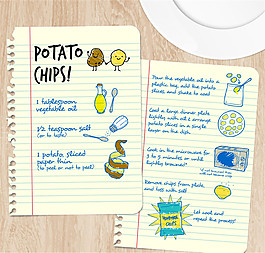 POTATO
CHIPS!
1 tablespoon
vegetable oil
1/2 teaspoon salt
(or to taste)
1 potato sliced
paper thin
(to peel or not to peel)
Pour the vegetable oil into a
plastic bag, add the potato
slices and shake to coat
Coat a large dinner plate
lightly with oil & arrange
potato slices in a single
layer on the dish
Cook in the microwave for
3 to 5 minutes or until
lightly browned*
Remove chips from plate
and toss with salt
POTATO
CHIPS
Let cool and
repeat the process!